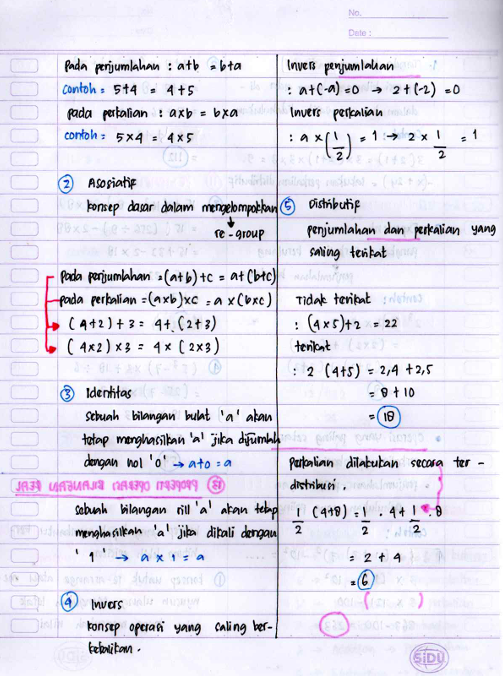 No.
Date :
Pada penjumlahan : a+b = b+a
contoh = 5+4 = 4+5
Pada perkalian : a×b = b×a
contoh = 5×4 = 4×5
② Asosiatif
konsep dasar dalam mengelompokkan
re-group
Pada penjumlahan = (a+b)+c = a+(b+c)
Pada perkalian = (a×b)×c = a×(b×c)
(4+2)+3 = 4+(2+3)
(4×2)×3 = 4×(2×3)
③ Identitas
sebuah bilangan bulat 'a' akan
tetap menghasilkan 'a' jika dijumlah
dengan nol '0' → a+0 = a
sebuah bilangan riil 'a' akan tetap
menghasilkan 'a' jika dikali dengan
'1' → a × 1 = a
④ Invers
konsep operasi yang saling ber-
kebalikan.
Invers penjumlahan
: a+(-a)=0 → 2+(-2) = 0
Invers perkalian
: a × (1/2) = 1 → 2 × 1/2 = 1
⑤ Distributif
penjumlahan dan perkalian yang
saling terikat
Tidak terikat :
: (4×5)+2 = 22
terikat
: 2 (4+5) = 2,4 + 2,5
= 8 + 10
= 18
Perkalian dilakukan secara ter-
distribusi.
1/2 (4+8) = 1/2 . 4 + 1/2 . 8
= 2 + 4
= 6
SiDU